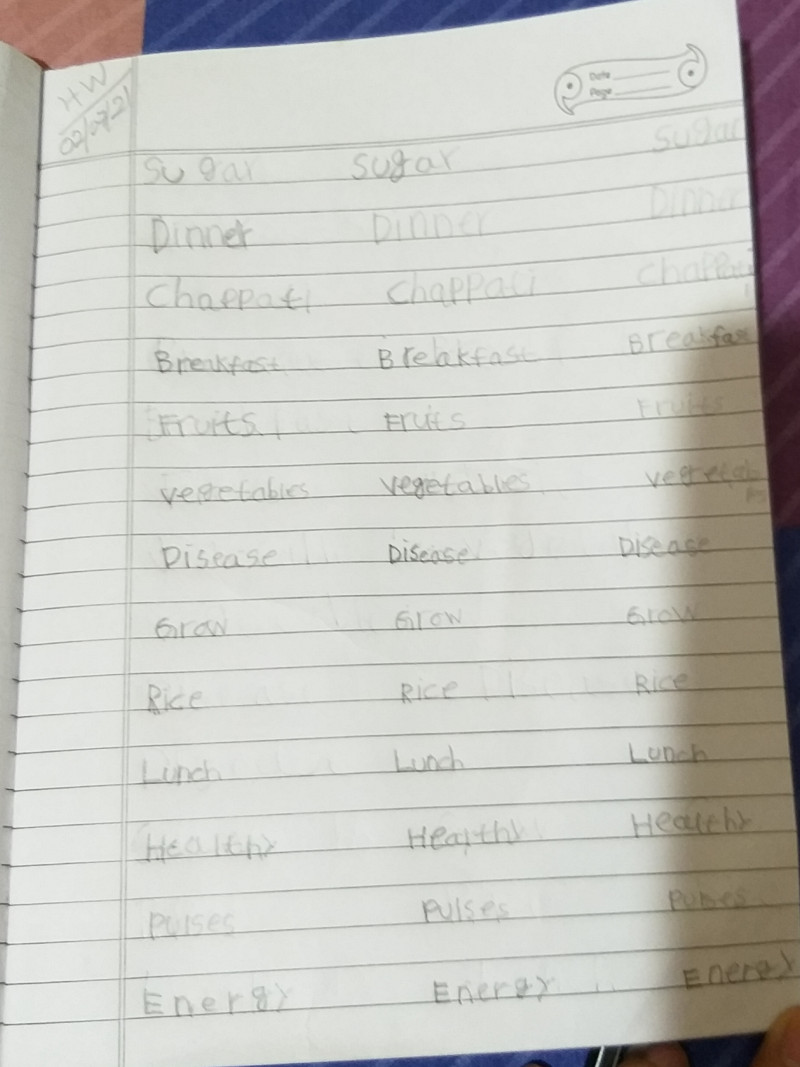 HW
02/07/21
Date
Page
Sugar Sugar Sugar
Dinner Dinner Dinner
Chappati Chappati Chappati
Breakfast Breakfast Breakfas
Fruits Fruits Fruits
vegetables vegetables vegetab
Disease Disease Disease
Grow Grow Grow
Rice Rice Rice
Lunch Lunch Lunch
Healthy Healthy Healthy
Pulses Pulses Pulses
Energy Energy Energy